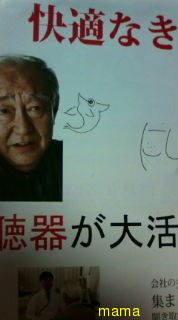 快適なき
聴器が大活
会社の
集ま
聞き取
mama